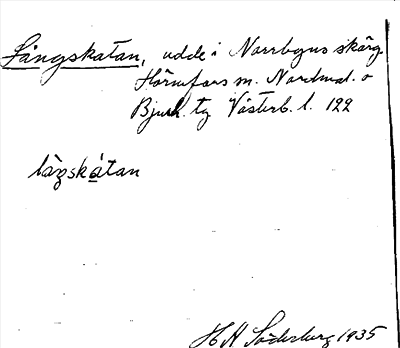 Långskatan, udde i Norrbyns skärg.
Hörnefors sn. Nordmal. o
Bjurh. tg Västerb. l. 122
làŋskátan
H H Söderburg 1935